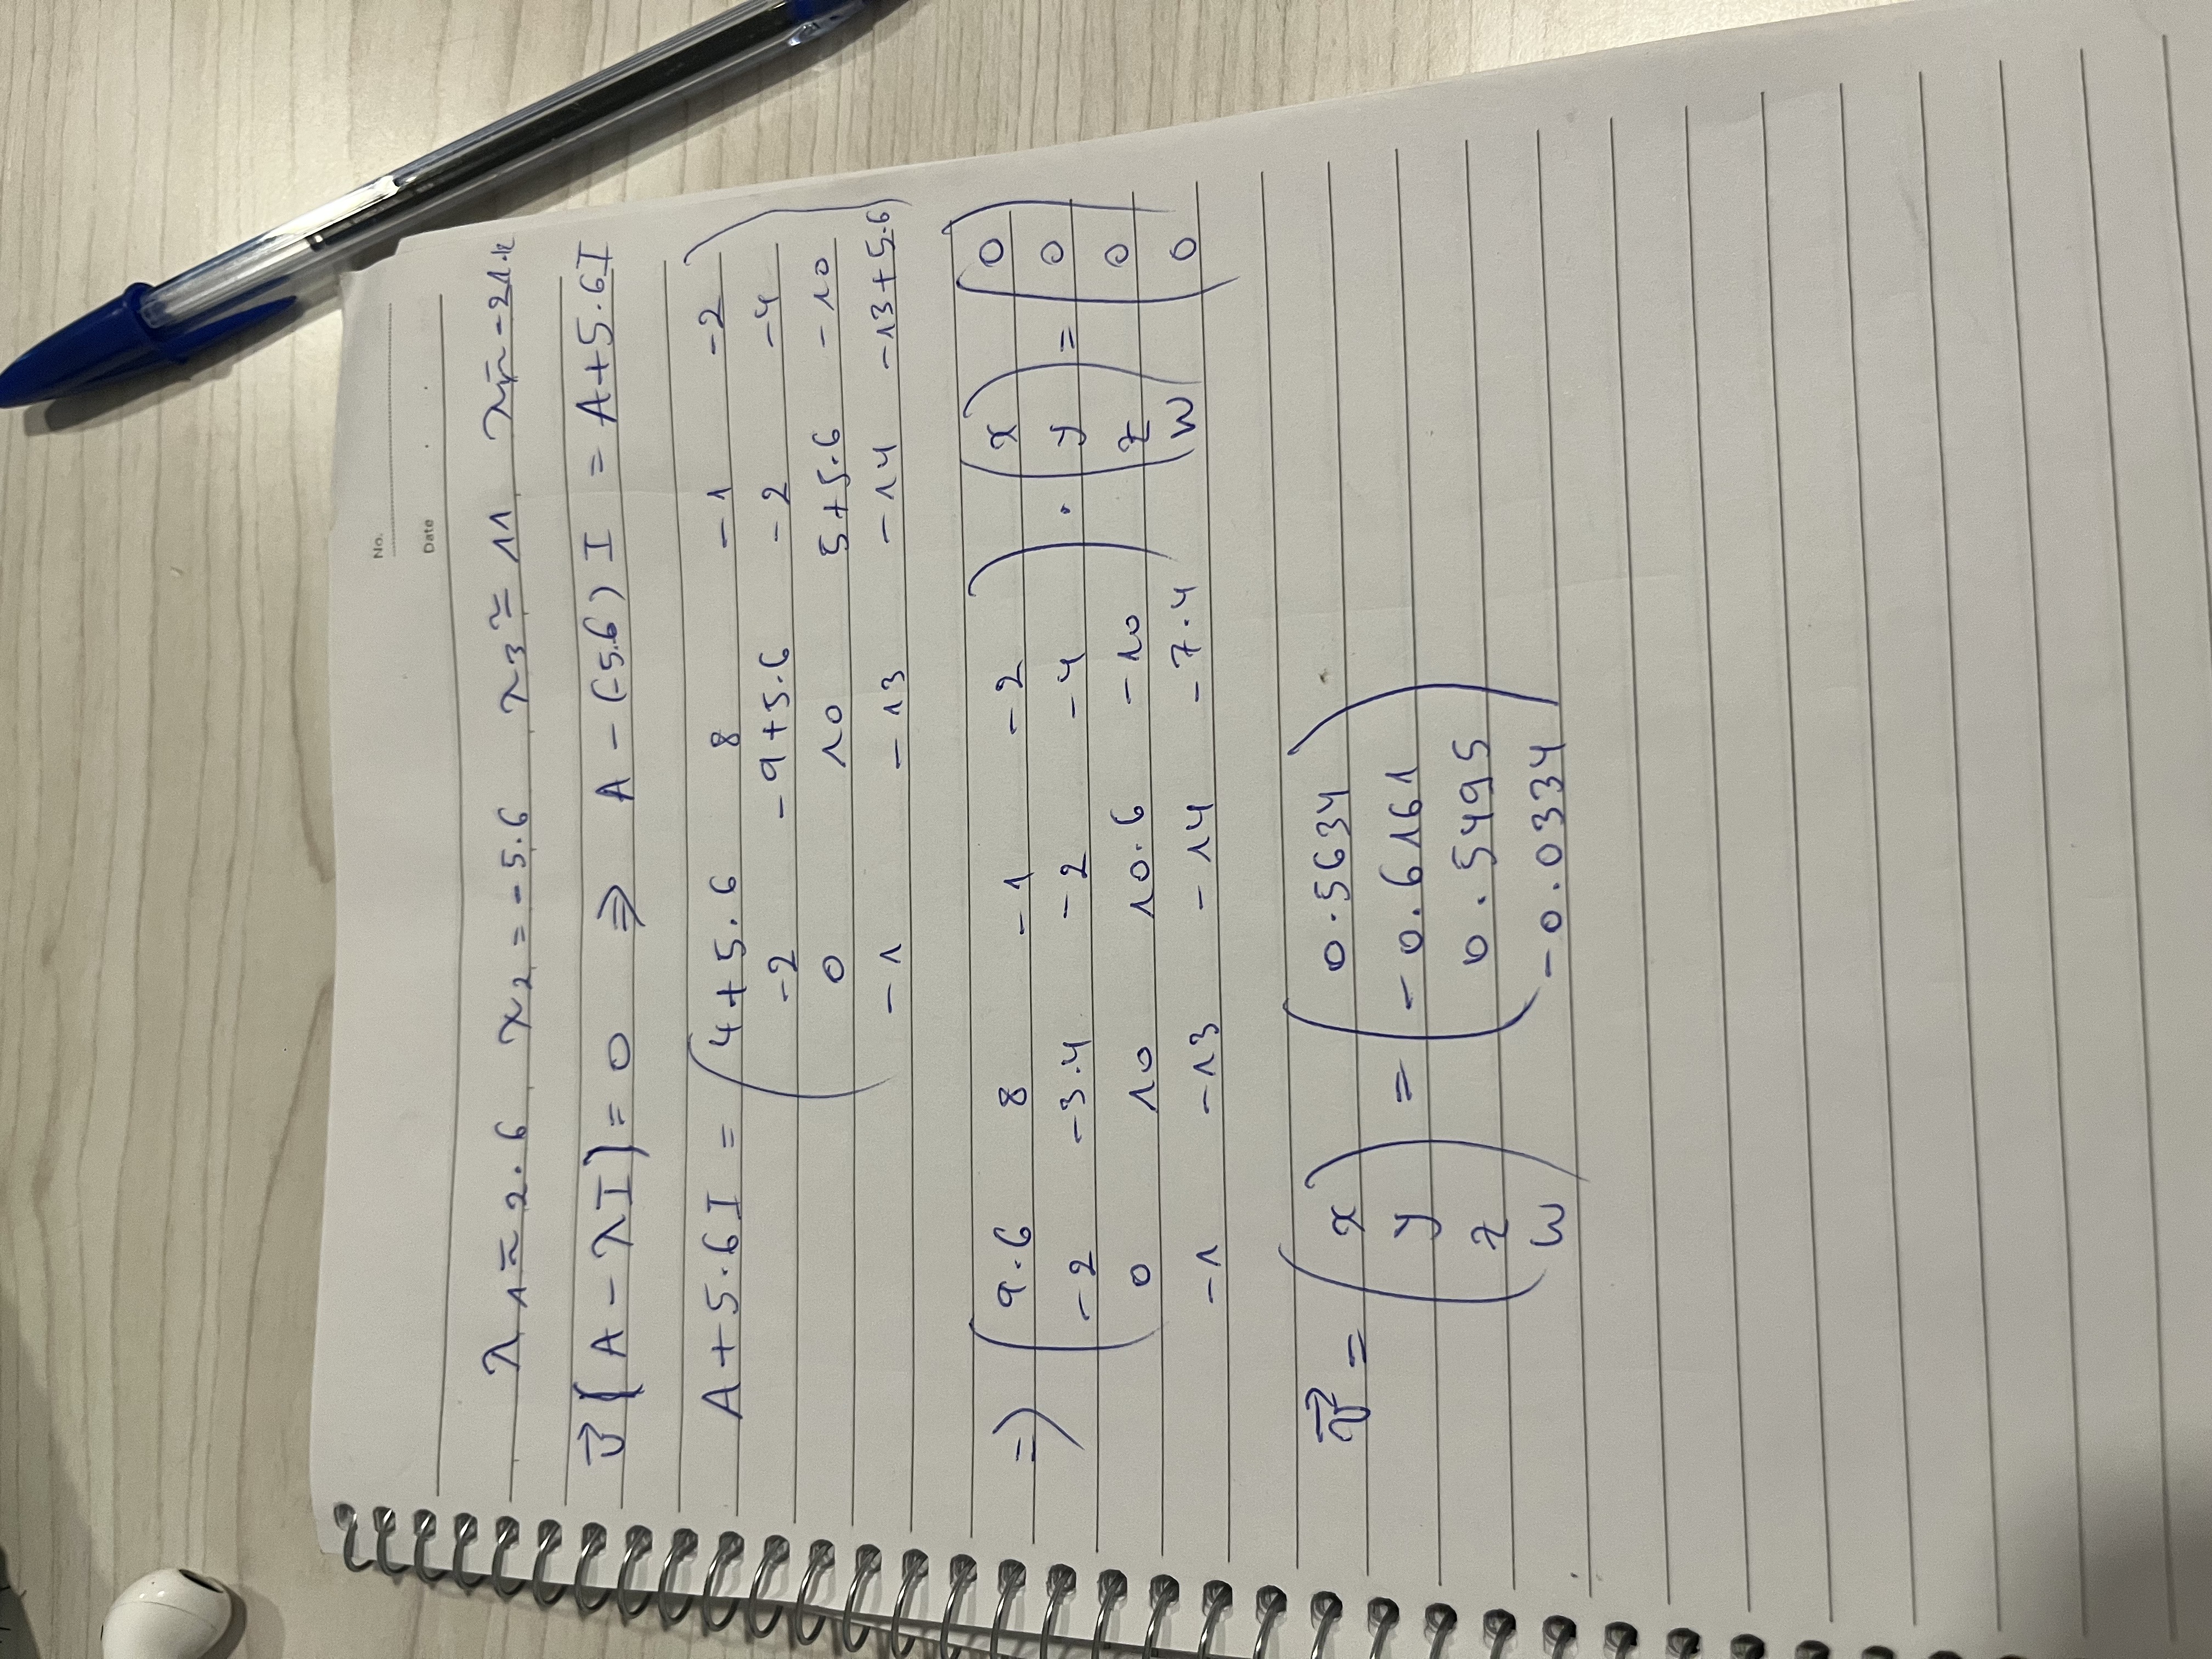 No.
Date . .
λ₁ ≈ 2.6, λ₂ = -5.6, λ₃ ≈ 11,
v⃗ [A - λI] = 0 ⇒ A - (-5.6) I = A + 5.6I
A + 5.6I = ( 4+5.6 8 -1 -2
-2 -9+5.6 -2 -4
0 10 5+5.6 -10
-1 -13 -14 -13+5.6 )
=> ( 9.6 8 -1 -2 ) · ( x ) = ( 0 )
-2 -3.4 -2 -4 y 0
0 10 10.6 -10 z 0
-1 -13 -14 -7.4 w 0
v⃗ = ( x ) = ( 0.5634 )
y -0.6161
z 0.5495
w -0.0334